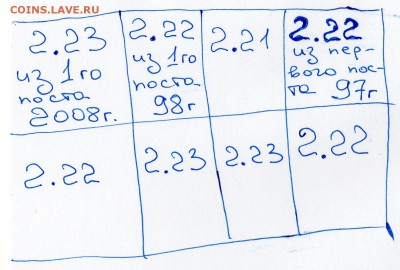 COINS.LAVE.RU
2.23
из 1го
поста
2008г.
2.22
из 1го
поста
98г
2.21
2.22
из пер-
вого пос-
та 97г
2.22
2.23
2.23
2.22